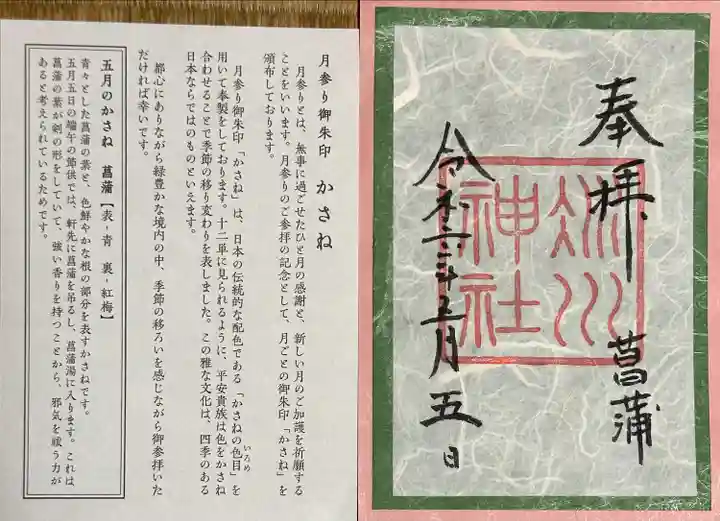 月参り御朱印 かさね
月参りとは、無事に過ごせたひと月の感謝と、新しい月のご加護を祈願する
ことをいいます。月参りのご参拝の記念として、月ごとの御朱印「かさね」を
頒布しております。
月参り御朱印「かさね」は、日本の伝統的な配色である「かさねの色目いろめ」を
用いて奉製をしております。十二単に見られるように、平安貴族は色をかさね
合わせることで季節の移り変わりを表しました。この雅な文化は、四季のある
日本ならではのものといえます。
都心にありながら緑豊かな境内の中、季節の移ろいを感じながら御参拝いた
だければ幸いです。
五月のかさね 菖蒲【表-青 裏-紅梅】
青々とした菖蒲の葉と、色鮮やかな根の部分を表すかさねです。
五月五日の端午の節供では、軒先に菖蒲を吊るし、菖蒲湯に入ります。これは
菖蒲の葉が剣の形をしていて、強い香りを持つことから、邪気を祓う力が
あると考えられているためです。
奉拝 菖蒲
氷川
神社
令和三年五月五日